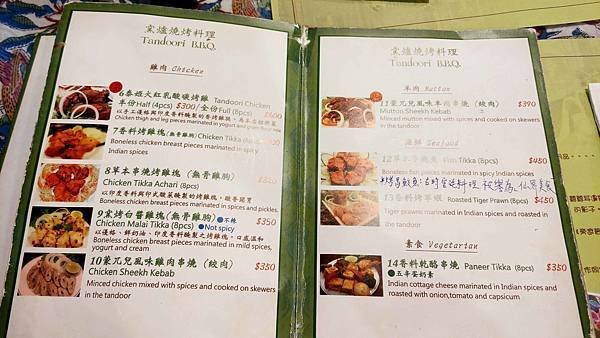 窯爐燒烤料理
Tandoori B.B.Q.
雞肉 Chicken
6泰姬火紅乳酸碳烤雞 Tandoori Chicken
半份Half (4pcs) $300/全份Full (8pcs) $600
以手工優格與印度香料醃製的香烤雞腿
Chicken thigh and leg pieces marinated in yogurt and
7香料烤雞塊(無骨雞胸) Chicken Tikka (8pcs)
Boneless chicken breast pieces marinated in spicy
Indian spices
8草本串燒烤雞塊 (無骨雞胸)
Chicken Tikka Achari (8pcs)
以印度香料與印式酸菜醃製的烤雞塊,
Boneless chicken breast pieces marinated in spices and pickles.
9窯烤白醬雞塊(無骨雞胸) ●不辣 $350
Chicken Malai Tikka (8pcs) ●Not spicy
以優格、鮮奶油、印度香料醃製之烤雞塊,口感溫和
Boneless chicken breast pieces marinated in mild spices,
yogurt and cream
10蒙兀兒風味雞肉串燒 (絞肉) $350
Chicken Sheekh Kebab
Minced chicken mixed with spices and cooked on skewers
in the tandoor
窯爐燒烤料理
Tandoori B.B.Q.
羊肉 Mutton
11蒙兀兒風味羊肉串燒 (絞肉) $390
Mutton Sheekh Kebab
Minced mutton mixed with spices and cooked on skewers
in the tandoor
海鮮 Seafood
Fish Tikka (8pcs) $450
Boneless fish pieces marinated in spicy Indian spices
13香料烤草蝦 Roasted Tiger Prawn (8pcs) $450
Tiger prawns marinated in Indian spices and roasted in
the tandoor
素食 Vegetarian
14香料乾酪串燒 Paneer Tikka (8pcs) $350
●五辛蛋奶素
Indian cottage cheese marinated in Indian spices and
roasted with onion,tomato and capsicum